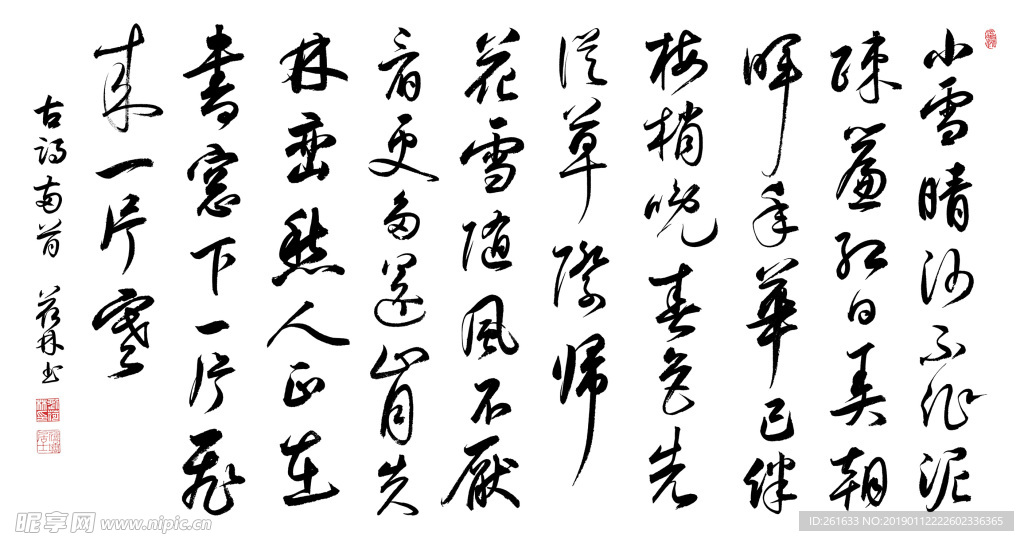 小雪晴沙不作泥
疎簾紅日弄朝
暉年華已伴
梅梢晚春色先
從草際歸
花雪随風不厭
看更多還肯失
林巒愁人正在
書窓下一片飛
来一片寒
古诗两首 书
昵享网 www.nipic.cn
ID:261633 NO:20190112222602336365